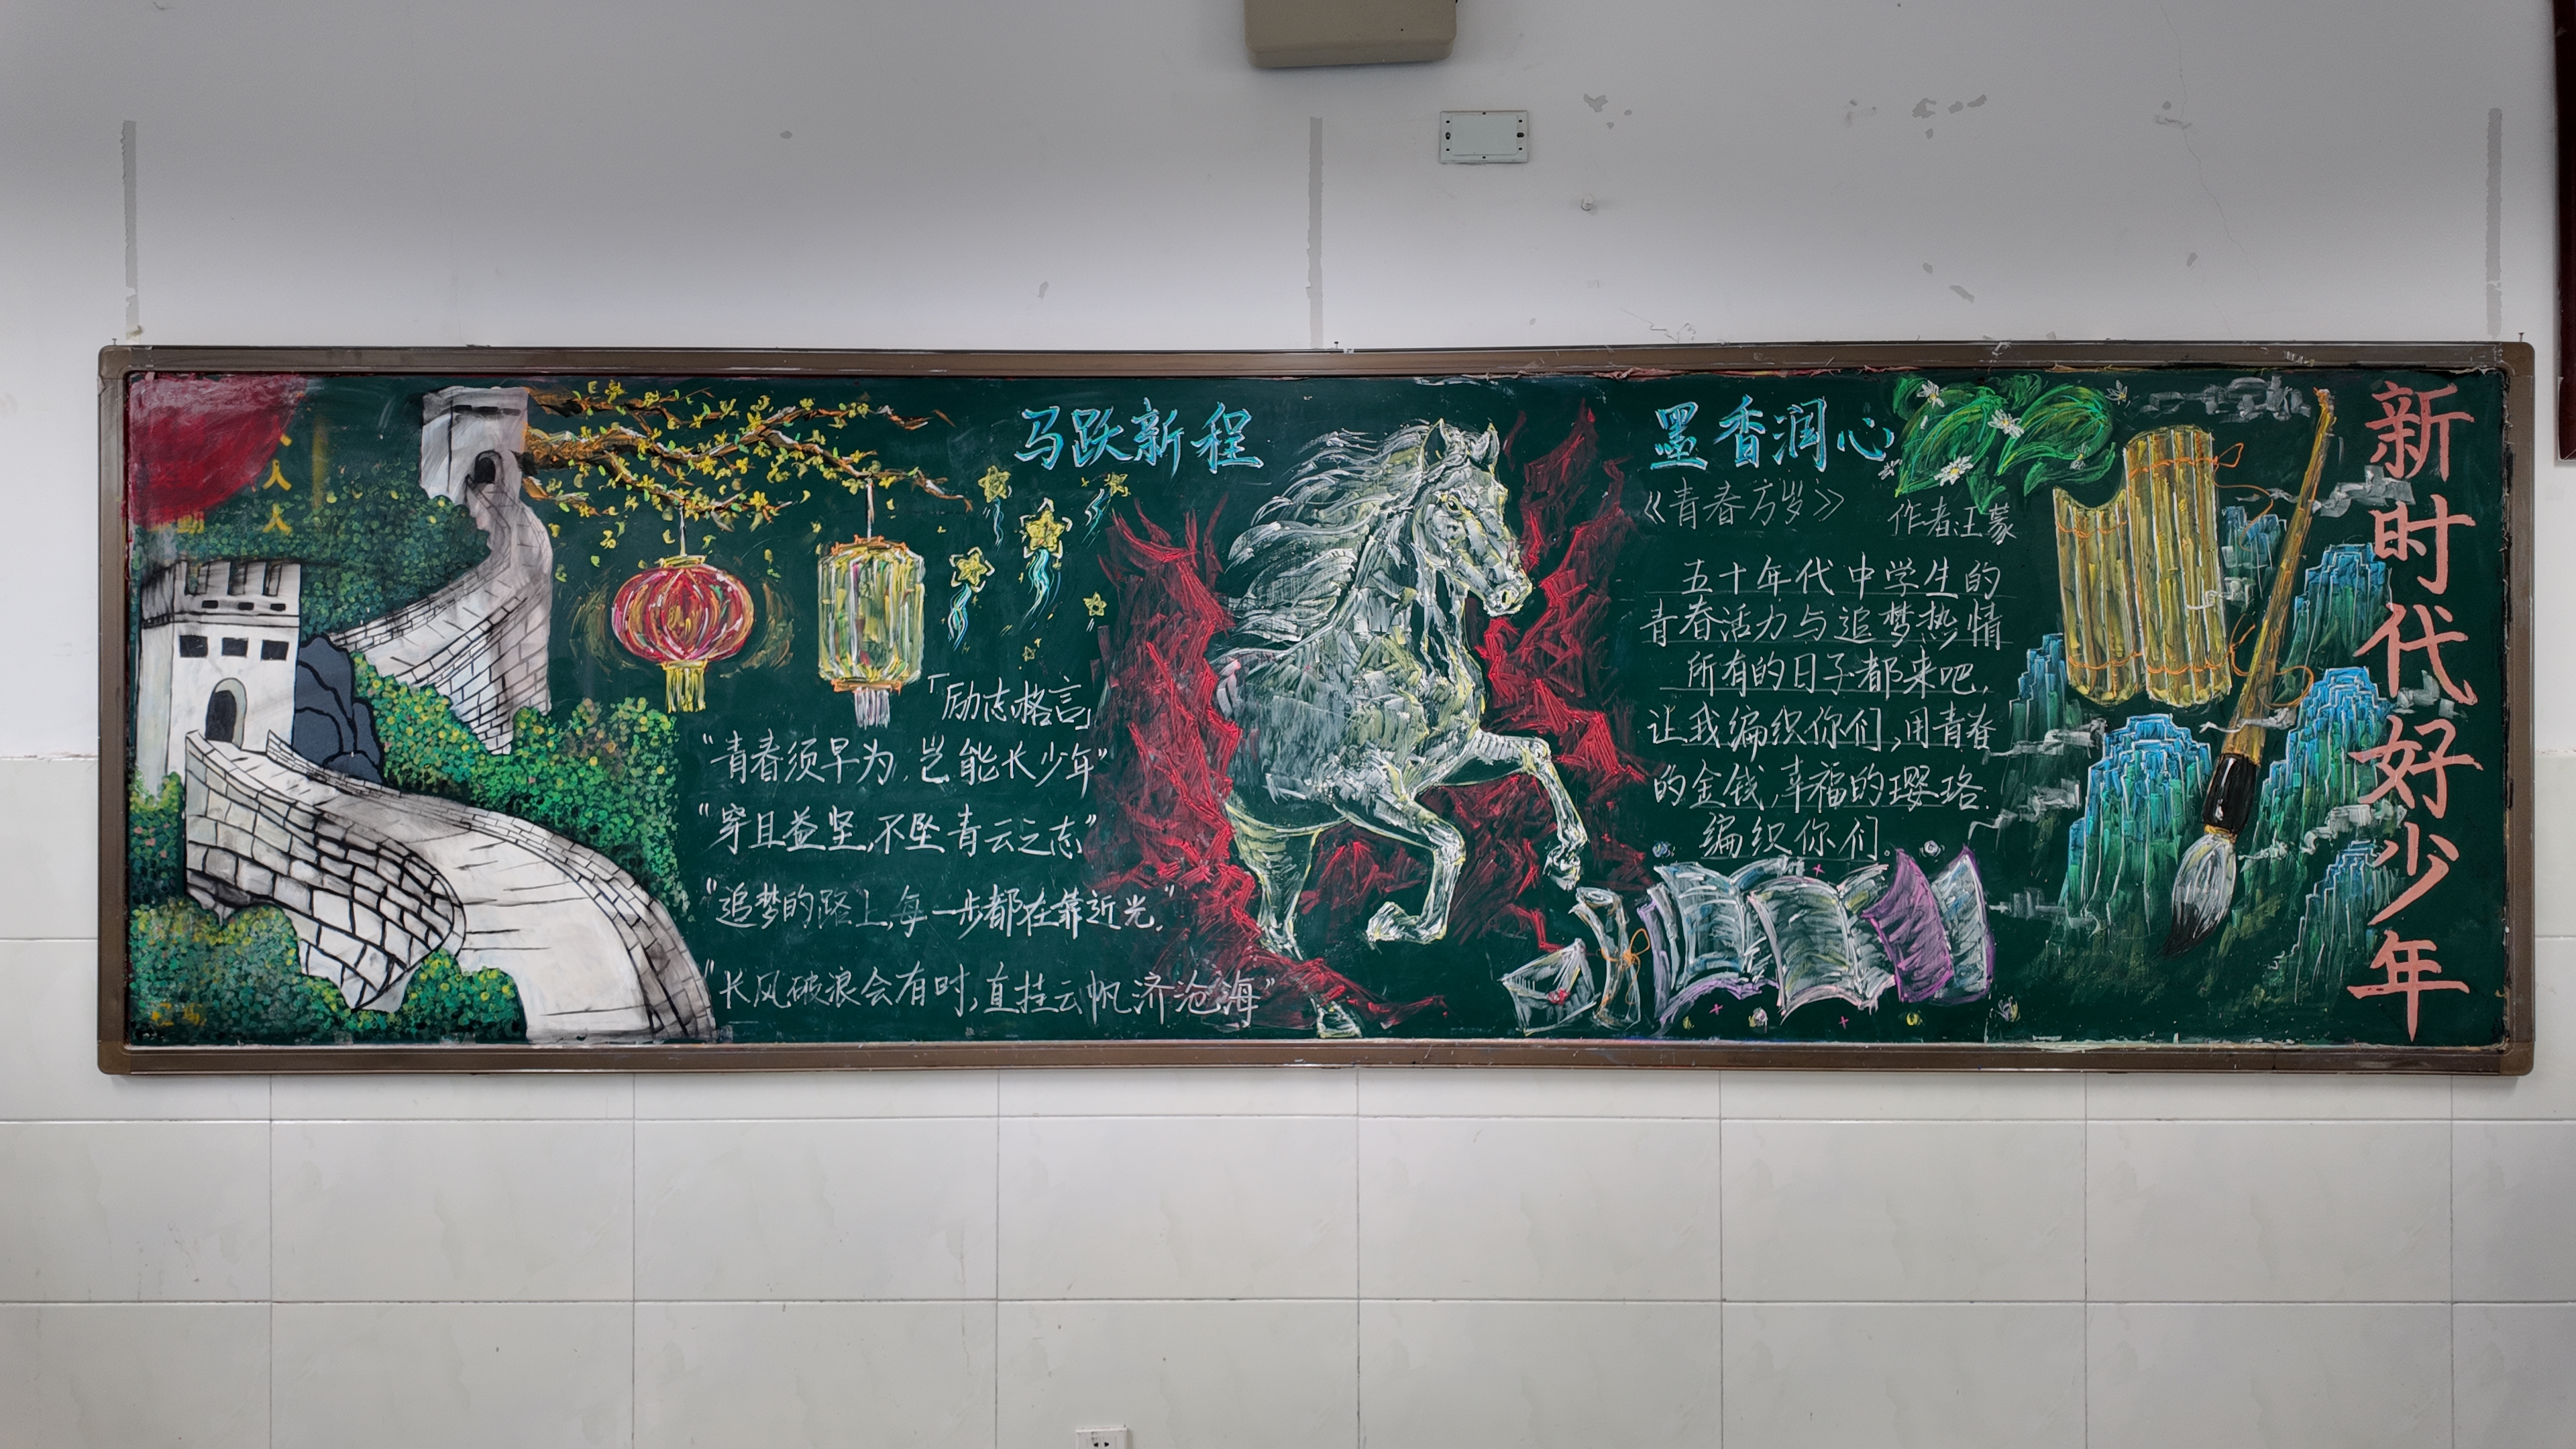 马跃新程
「励志格言」
"青春须早为，岂能长少年"
"穿且益坚，不坠青云之志"
"追梦的路上，每一步都在靠近光."
"长风破浪会有时，直挂云帆济沧海"
墨香润心
《青春万岁》
作者:王蒙
五十年代中学生的
青春活力与追梦热情
所有的日子都来吧，
让我编织你们，用青春
的金钱，幸福的璎珞.
编织你们。
新时代好少年